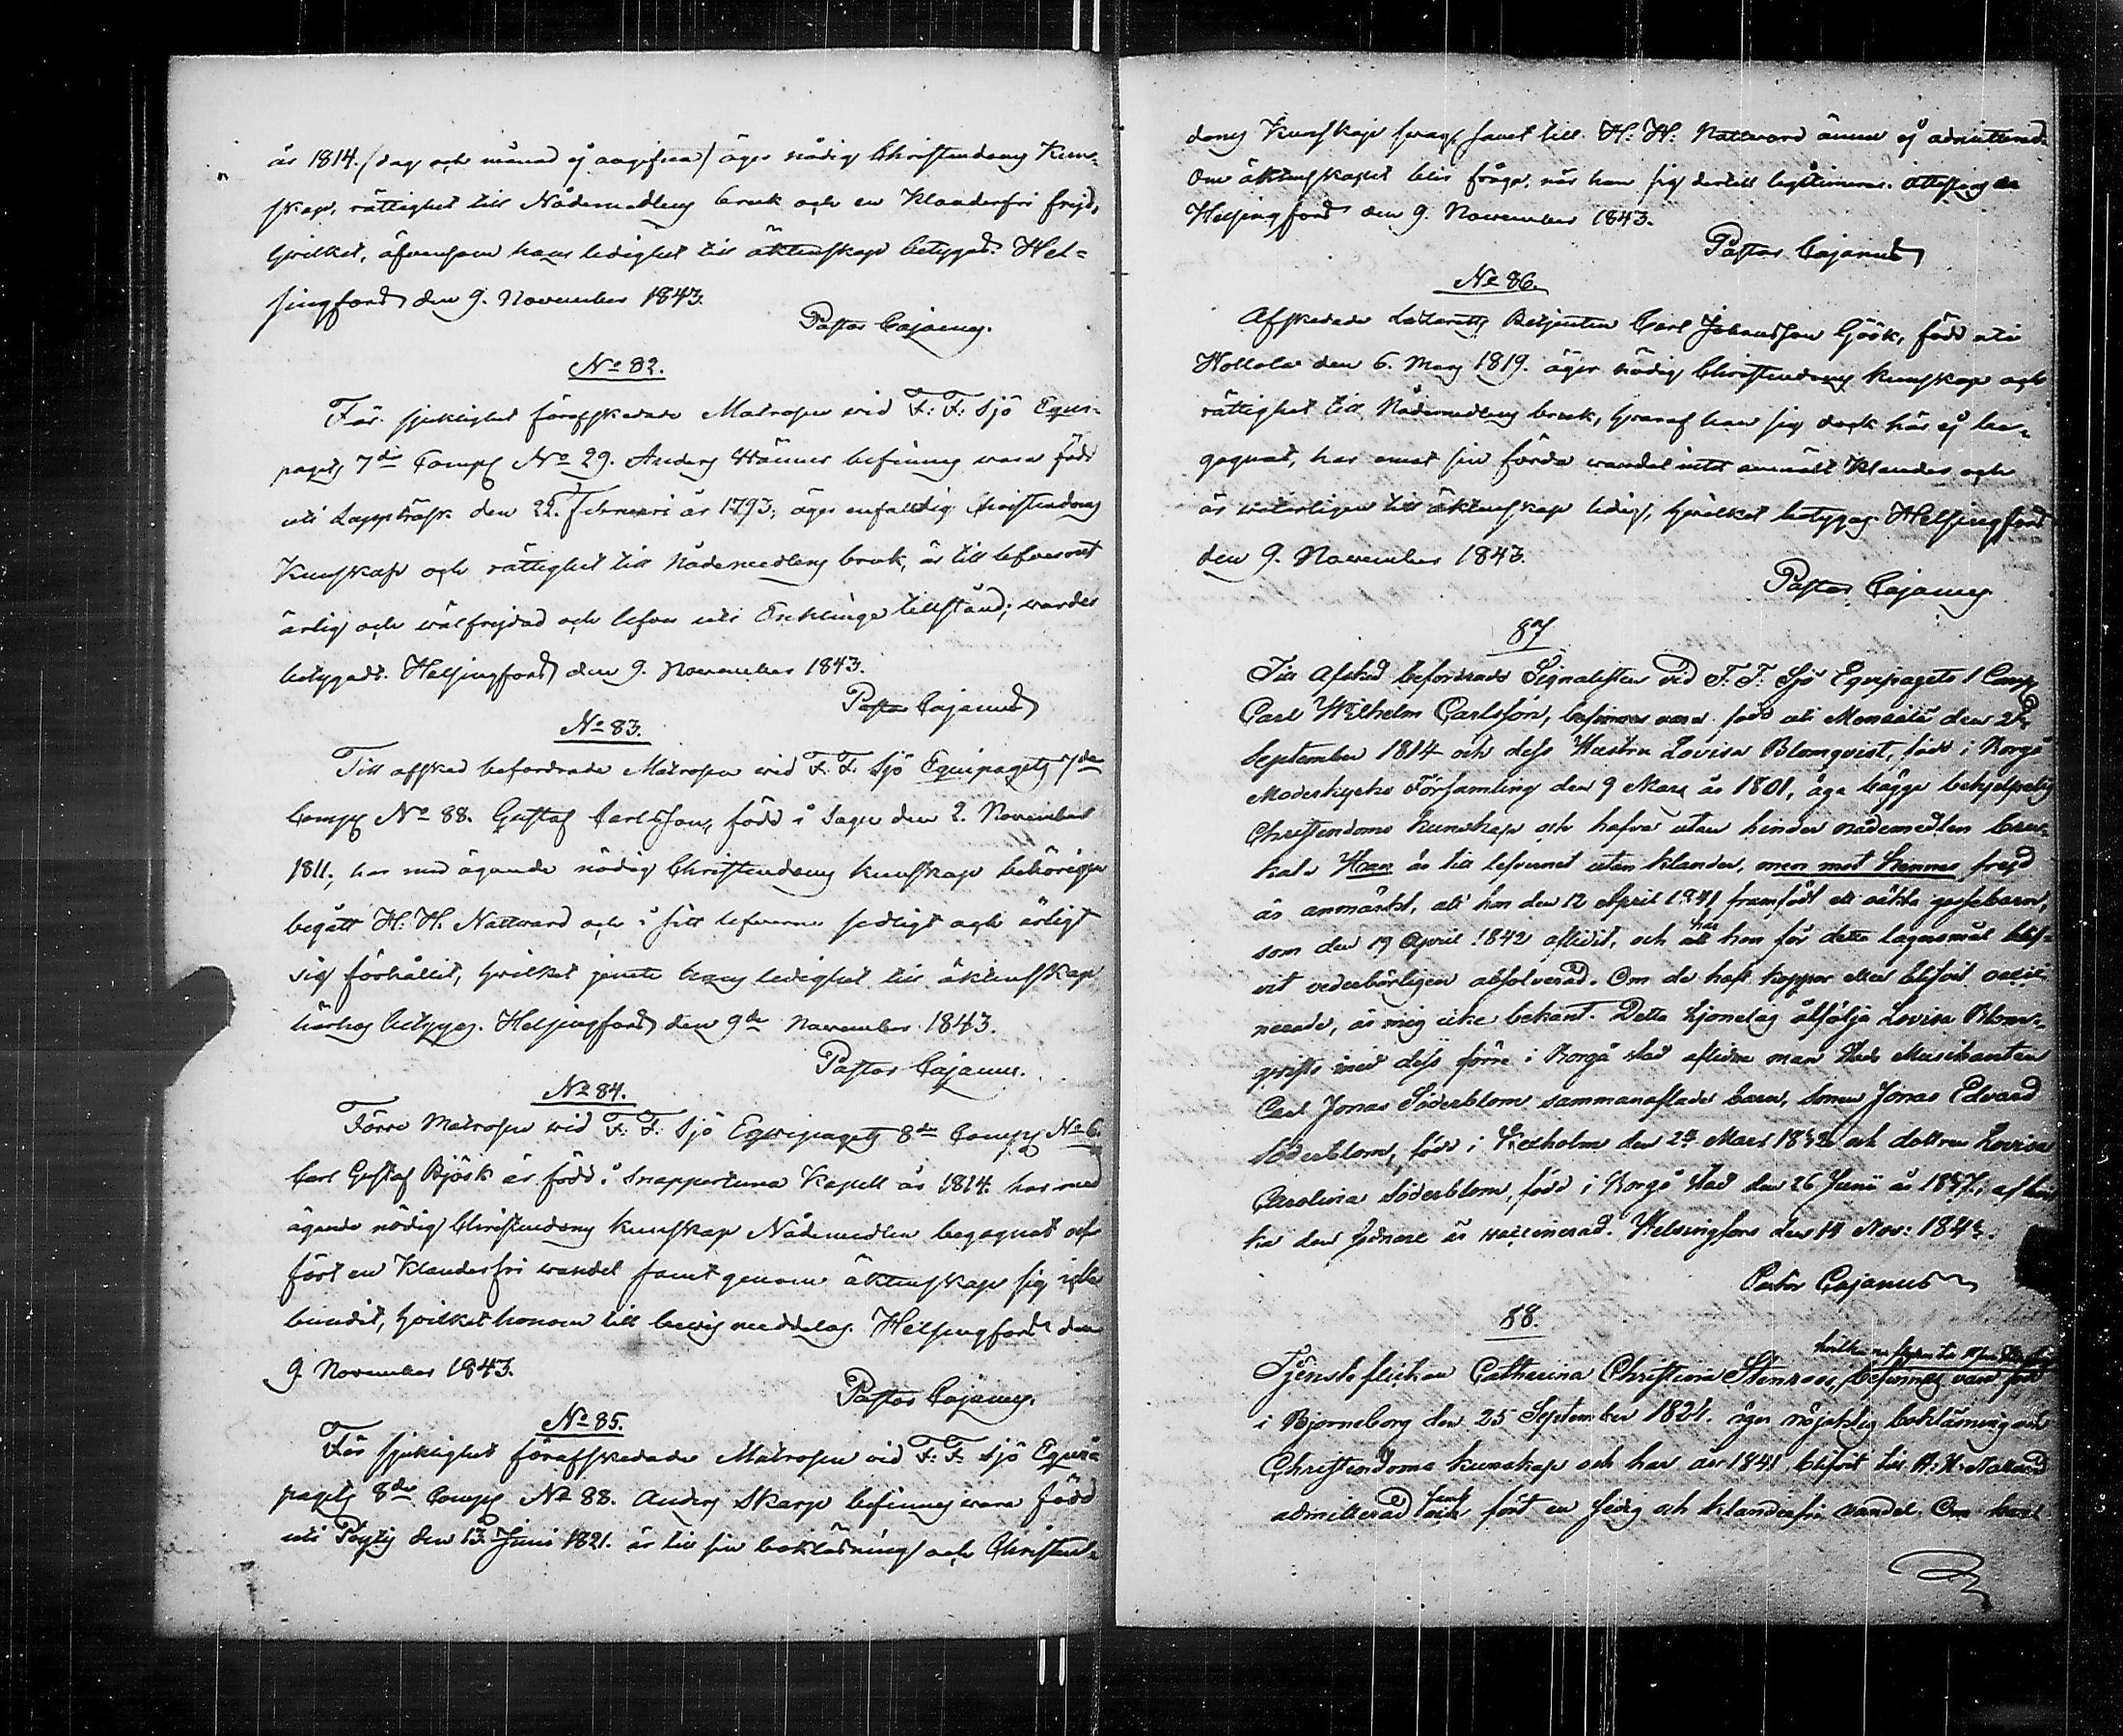 år 1814. /dag och månad ej angifven/ äger nödig Christendoms Kun-
skap, rättighet till Nådemedlens bruk och en Klanderfri frejd,
hvilket, äfvensom hans ledighet till äktenskap betygas. Hel-
singfors den 9. November 1843.
Pastor Cajanus.
No 82.
För sjuklighet förafskedade Matrosen vid F: F: Sjö Equi-
pagets 7de Comps No 29. Anders Wänner befinnes vara född
uti Lappträsk den 22. Februari år 1793; äger enfaldig Christendoms
Kunskap och rättighet till Nådemedlens bruk, är till lefvernet
ärlig och välfrejdad och lefver uti Enklinge tillstånd; varder
betygadt. Helsingfors den 9. November 1843.
Pastor Cajanus
No 83.
Till afsked befordrade Matrosen vid F. F. Sjö Equipagets 7de
Comps No 88. Gustaf Carlsson, född i Sagu den 2. November
1811; har med ägande nödig Christendoms kunskap behörigen
begått H. H. Nattvard och i sitt lefverne sedligt och ärligt
sig förhållit, hvilket jemte hans ledighet till äktenskap
härhos betygas. Helsingfors den 9de November 1843.
Pastor Cajanus.
No 84.
Förre Matrosen vid F: F: Sjö Equipagets 8de Comps No 6.
Carl Gustaf Björk är född i Snappertuna Kapell år 1814. har med
ägande nödig Christendoms kunskap Nådemedlen begagnat och
fört en Klanderfri vandel samt genom äktenskap sig icke
bundit, hvilket honom till bevis meddelas. Helsingfors den
9. November 1843.
Pastor Cajanus.
No 85.
För sjuklighet förafskedade Matrosen vid F: F: Sjö Equi-
pagets 8de Comps No 88. Anders Skarp befinnes vara född
uti Pöytis den 13. Juni 1821. är till sin bokläsning och Christen-
doms Kunskap svag, samt till H: H: Nattvard ännu ej admitterad.
Om äktenskapet blir fråga, när han sig dertill legitimerar. Attesteras
Helsingfors den 9. November 1843.
Pastor Cajanus
No 86.
Afskedade Lazaretts Betjenten Carl Johansson Gjöök, född uti
Hollola den 6. Mars 1819. äger nödig Christendoms kunskap och
rättighet till Nådemedlens bruk, hvaraf han sig dock här ej be-
gagnat, har emot sin förda vandel intet anmält klander och
är veterligen till äktenskap ledig, hvilket betygas Helsingfors
den 9. November 1843.
Pastor Cajanus
87
Till Afsked befordrade Signalisten vid F. F. Sjö Equipagets 1 Comp
Carl Wilhelm Carlsson, befinnes vara född uti Mensälä den
September 1814 och dess Hustru Lovisa Blomqvist, född i Borgå
Moderkyrko Församling den 9 Mars år 1801, äga bägge behjelpelig
Christendoms kunskap och hafva utan hinder nådemedlen bru-
kat. Han är till lefvernet utan klander, men mot hennes frejd
är anmärkt, att hon den 12 April 1841 framfödt ett oäkta gossebarn,
som den 19 April 1842 aflidit, och att hon har för detta lägersmål blif-
vit vederbörligen absolverad. Om de haft koppor eller blifvit vacci-
nerade, är mig icke bekant. Detta hjonelag åtfölja Lovisa Blom-
qvists med dess förre i Borgå stad aflidne man Stads Musikanten
Carl Jonas Söderblom sammanaflade barn, sonen Jonas Edvard
Söderblom, född i Kexholm den 24 Mars 1832 och dottren Lovisa
Carolina Söderblom, född i Borgå stad den 26 Junii år 1837; af hvil-
ka den är vaccinerad. Helsingfors den 14 Nov: 1843.
Pastor Cajanus
88.
Tjensteflickan Catharina Christina Stenroos, befinnes vara född
i Björneborg den 25 September 1821. äger nöjaktig bokläsning och
Christendoms kunskap och har år 1841 blifvit till H: H: Nattvard
admitterad samt fört en sedig och klanderfri vandel. Om